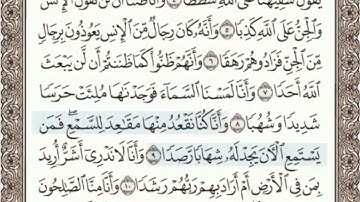 يَقُولُ سَفِيهُنَا عَلَى ٱللَّهِ شَطَطًا ٤ وَأَنَّا ظَنَنَّآ أَن لَّن تَقُولَ ٱلْإِنسُ
وَٱلْجِنُّ عَلَى ٱللَّهِ كَذِبًا ٥ وَأَنَّهُۥ كَانَ رِجَالٌ مِّنَ ٱلْإِنسِ يَعُوذُونَ بِرِجَالٍ
مِّنَ ٱلْجِنِّ فَزَادُوهُمْ رَهَقًا ٦ وَأَنَّهُمْ ظَنُّوا۟ كَمَا ظَنَنتُمْ أَن لَّن يَبْعَثَ
ٱللَّهُ أَحَدًا ٧ وَأَنَّا لَمَسْنَا ٱلسَّمَآءَ فَوَجَدْنَٰهَا مُلِئَتْ حَرَسًا
شَدِيدًا وَشُهُبًا ٨ وَأَنَّا كُنَّا نَقْعُدُ مِنْهَا مَقَٰعِدَ لِلسَّمْعِ ۖ فَمَن
يَسْتَمِعِ ٱلْءَانَ يَجِدْ لَهُۥ شِهَابًا رَّصَدًا ٩ وَأَنَّا لَا نَدْرِىٓ أَشَرٌّ أُرِيدَ
بِمَن فِى ٱلْأَرْضِ أَمْ أَرَادَ بِهِمْ رَبُّهُمْ رَشَدًا ١٠ وَأَنَّا مِنَّا ٱلصَّٰلِحُونَ